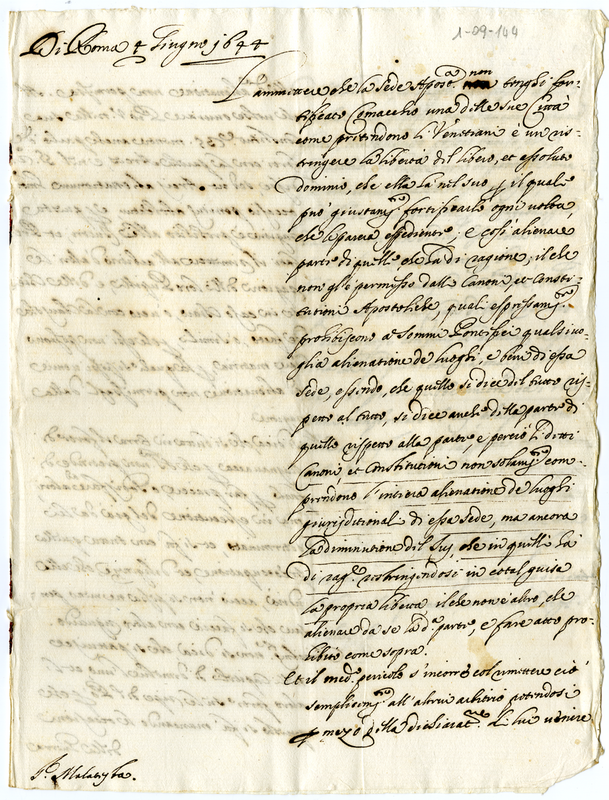 1-09-144
Di Roma 4 Giugno 1644
L'ammettere che la sede Apost.ca non tenghi for-
tificato Comacchio una delle sue Città
come pretendono li Venetiani è un ris-
tringere la libertà del libero, et assoluto
dominio, che ella ha nel suo il quale
può giustam.te fortificarlo ogni volta,
che le pareva espediente; e così alienare
parte di quelle che ha di ragione; il che
non gl'è permesso dalli Canoni et Consti-
tutioni Apostoliche, quali espressam.te
prohibiscono à Sommi Pontefici qualsivo-
glia alienatione de luoghi, e beni di essa
sede, essendo, che quello si dice del tutto ris-
petto al tutto, si dice anche della parte di
quello rispetto alla parte, e perciò li detti
Canoni, et Constitutioni non solam.te com-
prendono l'intiera alienatione de luoghi
giurisditionali di essa sede, ma ancora
la diminutione del Jus, che in quelli ha
di rag.e restringendosi in cotal guisa
la propria libertà, il che non è altro, che
alienare da se la d.a parte, e fare atto pro-
hibito come sopra.
Et il med.o pericolo s'incorre col rimettere ciò
semplicem.te all'altrui arbitrio potendosi
p mezo della dichiarat.ne di lui venire